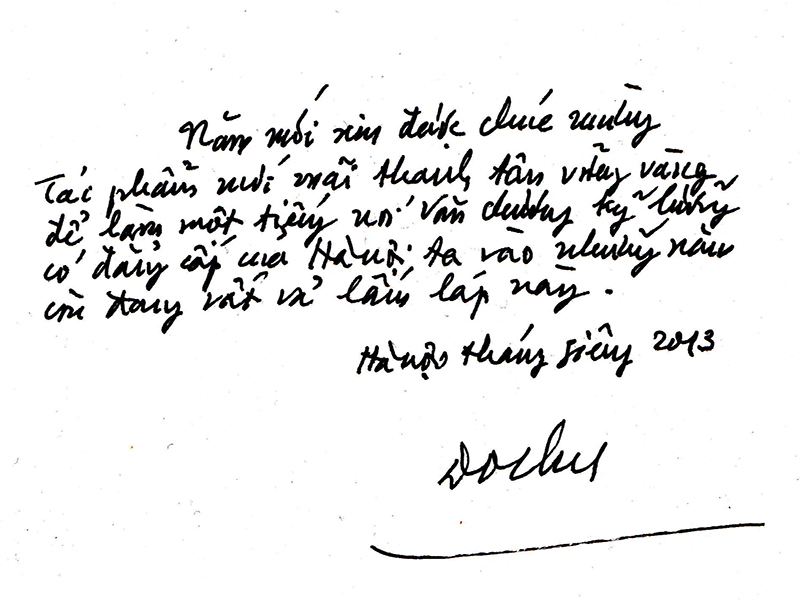 Năm mới xin được chúc mừng
Tác phẩm mới mãi thanh tân vững vàng
để làm một tiếng nói văn chương kỹ lưỡng
có đẳng cấp của Hà Nội ta vào những năm
còn đang vất vả lấm láp này.
Hà Nội tháng Giêng 2013
Đỗ Chu